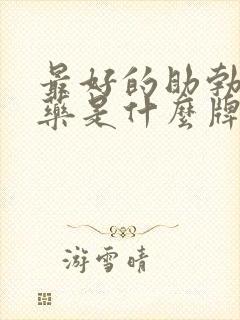 最好的助勃
藥是什麼牌
游雪晴